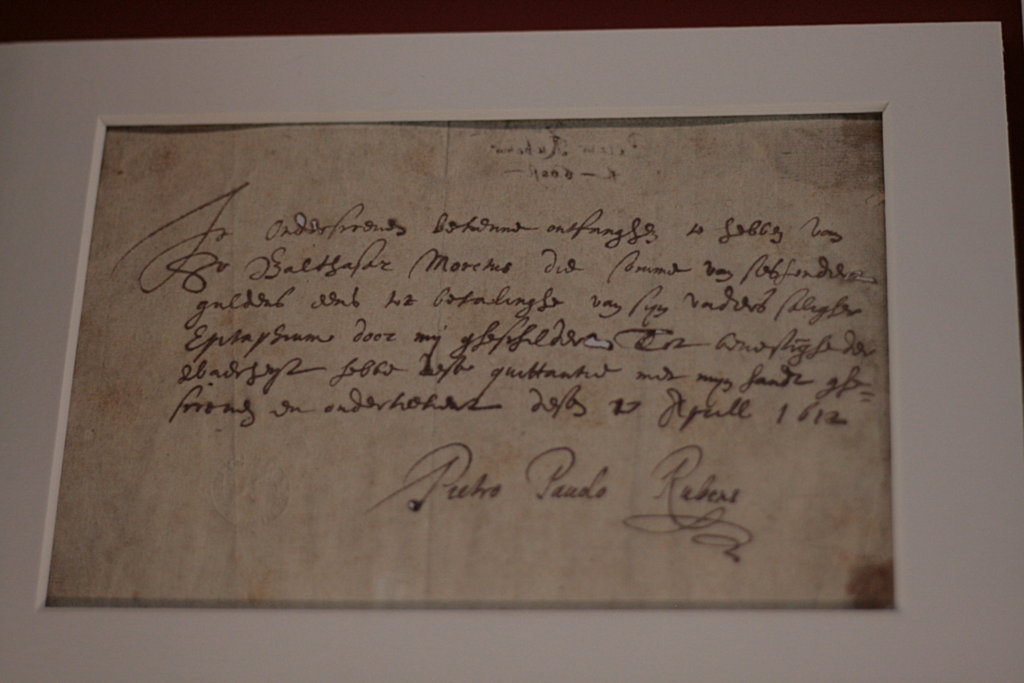 Ic onderscreven bekenne ontfanghen te hebben van
Sr Balthasar Moretus die somme van seshondert
guldens eens tot betalinghe van syn vaders saligher
Epitaphium door mij gheschildert Tot bevestinghe der
Waerheyt hebbe dese quittantie met myn handt ghe=
screven en ondertekent desen 27 April 1612
Pietro Pauolo Rubens